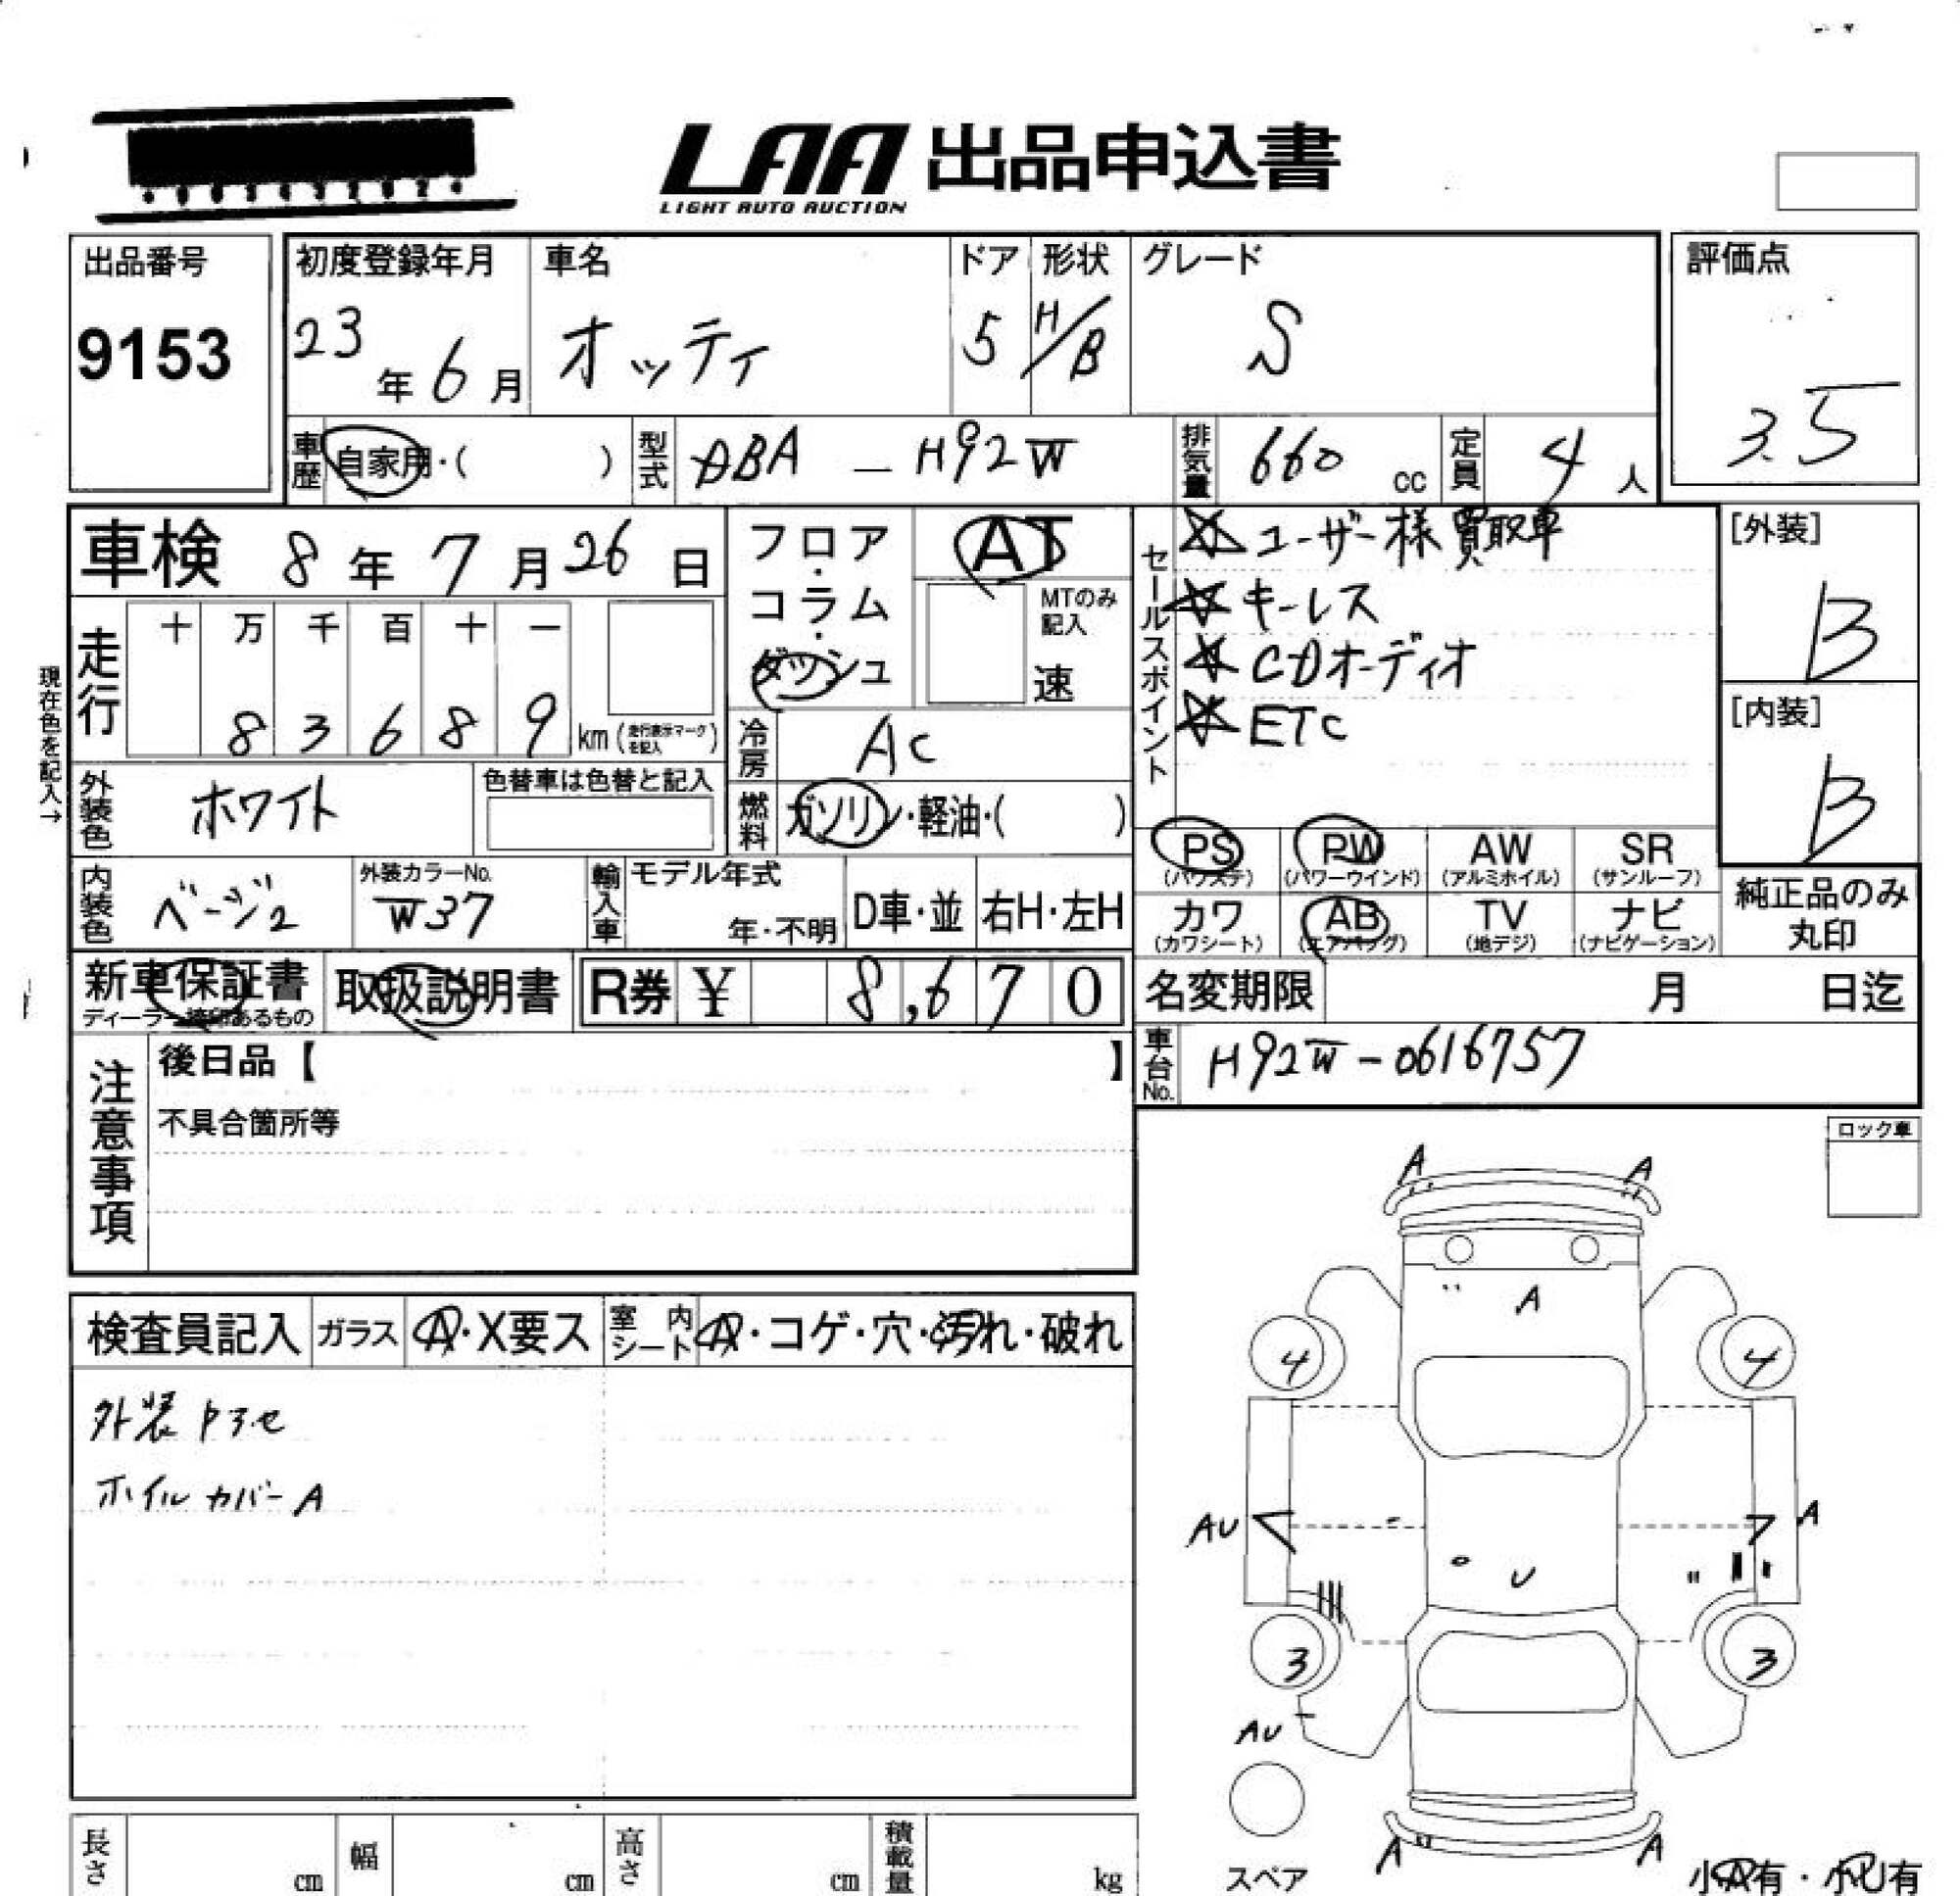 LAA 出品申込書
LIGHT AUTO AUCTION
出品番号
9153
初度登録年月
23年6月
車名
オッティ
ドア
5
形状
H/B
グレード
S
評価点
3.5
車歴
自家用・( )
型式
DBA - H92W
排気量
660 cc
定員
4人
車検 8年7月26日
フロア・コラム・ダッシュ
AT
MTのみ記入
速
セールスポイント
☆ユーザー様買取車
☆キーレス
☆CDオーディオ
☆ETC
[外装]
B
[内装]
B
現在色を記入→
走行
十 万 千 百 十 一
8 3 6 8 9 km (走行表示マークを記入)
冷房
AC
外装色
ホワイト
色替車は色替と記入
燃料
ガソリン・軽油・( )
PS (パワステ)
PW (パワーウインド)
AW (アルミホイル)
SR (サンルーフ)
内装色
ベージュ
外装カラーNo.
W37
輸入車
モデル年式
年・不明
D車・並
右H・左H
カワ (カワシート)
AB (エアバッグ)
TV (地デジ)
ナビ (ナビゲーション)
純正品のみ丸印
新車保証書
ディーラー捺印あるもの
取扱説明書
R券 ¥ 8,670
名変期限 月 日迄
車台No.
H92W-0616757
注意事項
後日品【 】
不具合箇所等
ロック車
検査員記入
ガラス
A・X要ス
室内シート
A・コゲ・穴・汚れ・破れ
外装 ヤヨセ
ホイルカバーA
A A
A
4 4
AU A
U
3 3
AU
A A
スペア
小A有・小U有
長さ cm
幅 cm
高さ cm
積載量 kg